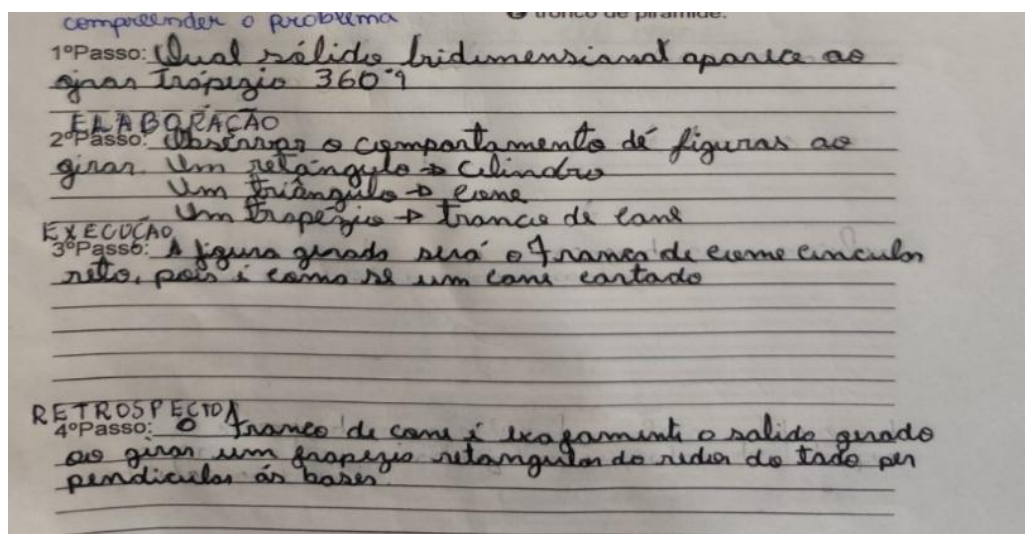 compreender o problema
tronco de pirâmide.
1ºPasso: Qual sólido tridimensional aparece ao
girar Trápezio 360º?
ELABORAÇÃO
2ºPasso: Observar o comportamento de figuras ao
girar. Um retângulo → Cilindro
Um triângulo → cone
Um trapézio → tronco de cone
EXECUÇÃO
3ºPasso: A figura gerada será o Tronco de cone circular
reto, pois é como se um cone cortado
RETROSPECTO
4ºPasso: O tronco de cone é exatamente o solido gerado
ao girar um trapezio retangular do redor do lado per
pendicular ás bases